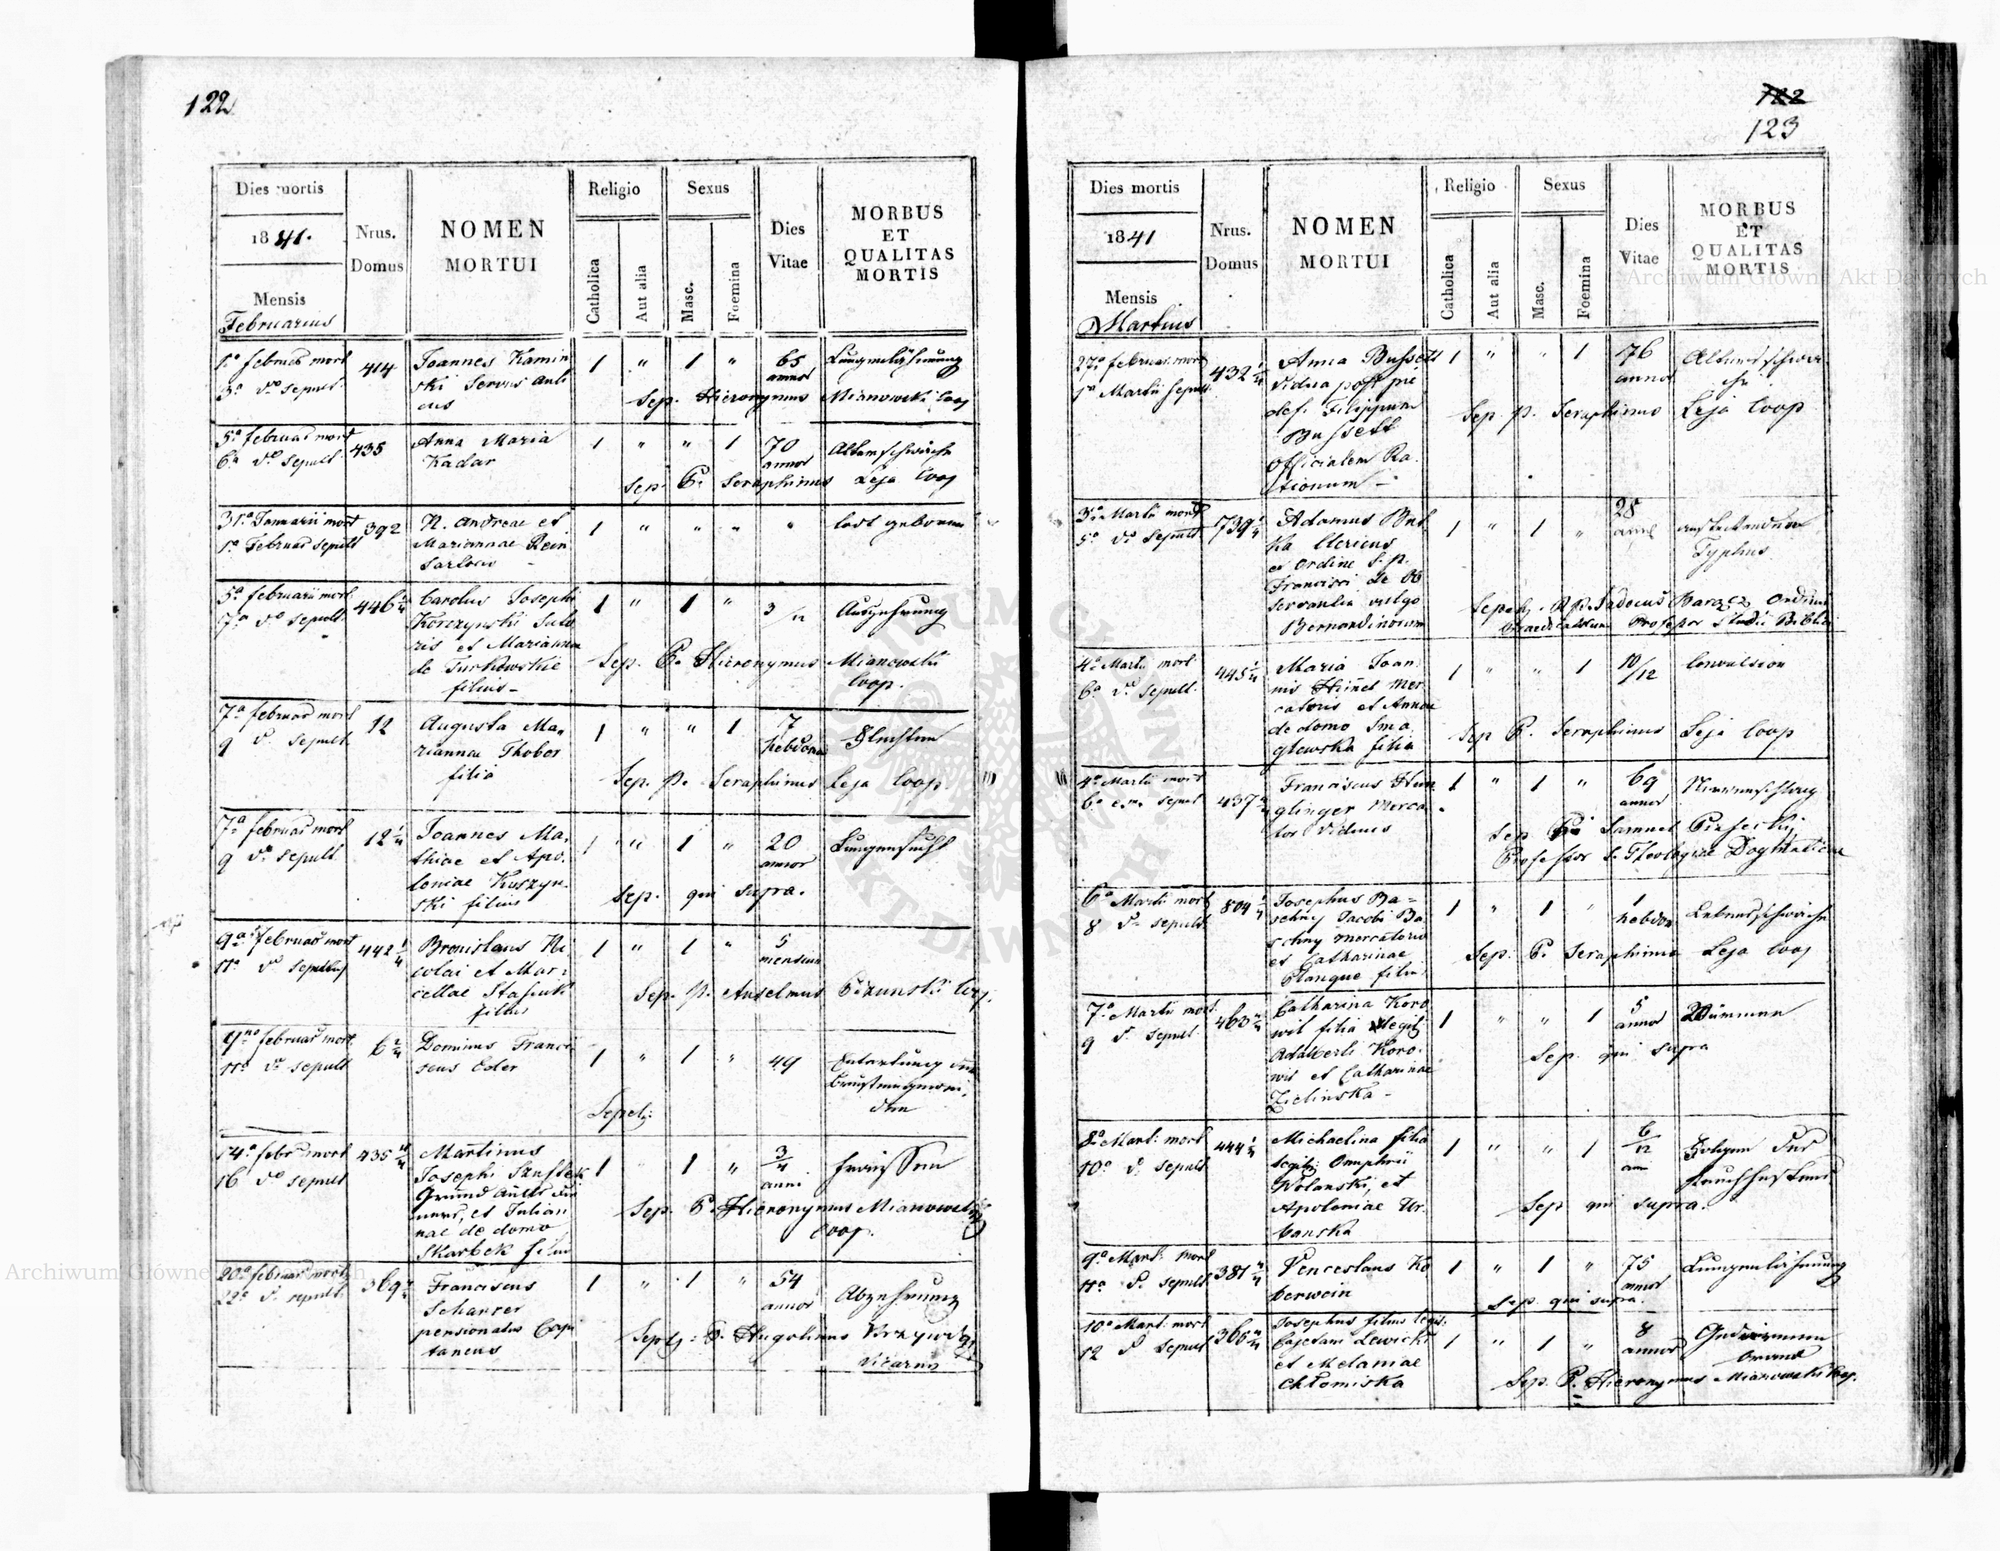 122
Dies mortis
1841.
Mensis
Februarius
Nrus.
Domus
NOMEN
MORTUI
Religio
Catholica
Aut alia
Sexus
Masc.
Foemina
Dies
Vitae
MORBUS
ET
QUALITAS
MORTIS
1a februar mort
3a do sepult.
414
Joannes Kamin
ski Servus
1 " 1 "
65
annor
Lungenlähmung
Sep. Hieronymus Mianowski Coop
5a februar mort
6a do Sepult
435
Anna Maria
Kadar
1 " " 1
70
annor
Altersschwäche
Sep. P. Seraphinus Leja Coop
31a Januarii mort
1a Februar sepult
392
N. Andreae et
Mariannae
1 " " " "
todt geboren
5a februarii mort
7a do sepult.
446
Carolus Josephi
Korczynski Suto
ris et Marianna
de Turkowskie
filius
1 " 1 "
3/12
Auszehrung
Sep. P. Hieronymus Mianowski
Coop.
7a februar mort
9 d. sepult.
12
Augusta Ma
riannae Thober
filia
1 " " 1
7
hebdom
Sep. P. Seraphinus Leja Coop.
7a februar mort
9 do sepult.
12 1/4
Joannes Ma
thiae et Apo
loniae Kuszyn
ski filius
1 " 1 "
20
annor
Lungensucht
Sep. qui supra.
9a februar mort
11a do sepult
442 1/4
Bronislaus Ni
colai et Mar
cellae
filius
1 " 1 "
5
mensium
Sep. P. Anselmus
februar mort
11a do sepult
6 2/4
Dominus Franci
scus Ester
1 " 1 "
49
Entartung der
Sepel:
14a febr mort
16 do sepult
435
Martinus
Josephi
et Julian
nae de domo
Skarbek filius
1 1 "
3/4
anni
Fraissen
Sep. P. Hieronymus Mianowski
Coop.
20a februar mort
22a d. sepult.
369
Franciscus
Scharrer
pensionatus Capi
taneus
1 " 1 "
54
annor
Abzehrung
Sept: P. Hugolinus
Vicarius
122
123
Dies mortis
1841
Mensis
Martius
Nrus.
Domus
NOMEN
MORTUI
Religio
Catholica
Aut alia
Sexus
Masc.
Foemina
Dies
Vitae
MORBUS
ET
QUALITAS
MORTIS
27a februar mort
1a Martii sepult
432 1/4
Anna Bussett
Vidua post pie
def. Filippum
Bussett
Officialem Ra
tionum
1 " " 1
76
annor
Altersschwä
che
Sep. P. Seraphinus Leja Coop
3a Martii mort
5a do sepult
739 1/4
Adamus But
ka Clericus
ex Ordine S. P.
Francisci de Ob
servantia vulgo
Bernardinorum
1 " 1 "
28
Typhus
Sepel. R.P. Sadocus Baracz Ordinis
Praedicatorum Professor Studii Biblici
4a Martii mort
6a do sepult.
445 1/4
Maria Joan
nis Heinel Mer
catoris et Annae
de domo Sma
glowska filia
1 " " 1
10/12
Convulsion
Sep P. Seraphinus Leja Coop
4a Martii mort
6a sepult
437
Franciscus
glinger Merca
tor Viduus
1 " 1 "
69
annor
Nervenschlag
Sep P. Samuel
Professor S. Theologiae Dogmaticae
6a Martii mort
8 d. sepult.
804 1/4
Josephus Ba
schny Jacobi Ba
schny mercatoris
et Catharinae
filius
1 " 1 "
1
hebdom
Lebensschwäche
Sep. P. Seraphinus Leja Coop
7a Martii mort
9 d. sepult.
463
Catharina Koro
wit filia illegit
Adalberti Koro
wit et Catharinae
Zielinska
1 " " 1
5
annor
Würmer
Sep. qui supra
8a Mart: mort
10a d. sepult
444 1/4
Michaelina filia
legit: Onuphrii
Wolanski, et
Apoloniae Ur
banska
1 " " 1
6/12
ann
Folgen des
Keuchhustens
Sep qui supra.
9a Mart: mort
11a d. sepult.
381
Venceslaus Ko
berwein
1 " 1 "
75
annor
Lungenlähmung
Sep. qui supra.
10a Mart: mort
12 d sepult
366
Josephus filius legi:
Cajetani Lewicki
et Melaniae
Chłomiska
1 " 1 "
8
annor
Sep. P. Hieronymus Mianowski Coop.
Archiwum Główne Akt Dawnych
Archiwum Główne Akt Dawnych